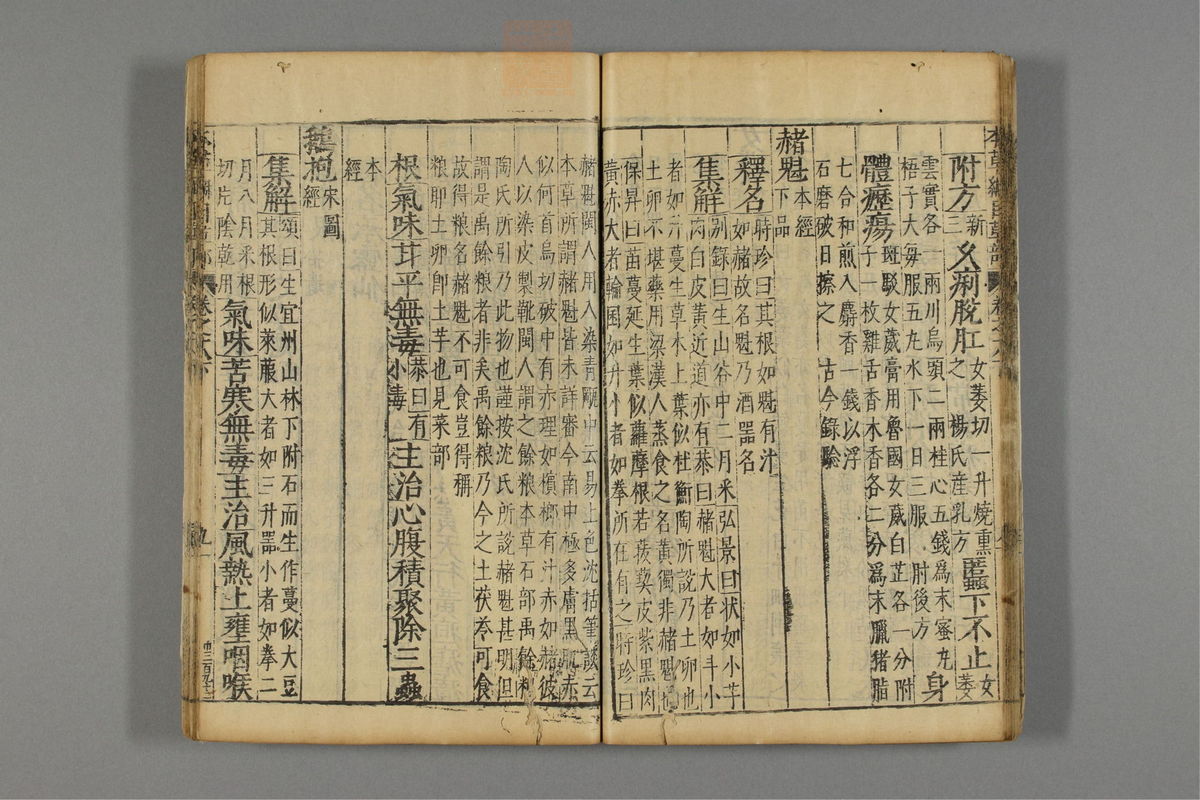 附方 新三 久痢脫肛 女萎切一升燒熏之 楊氏產乳方 䘌下不止 女萎
雲實各一兩川烏頭二兩桂心五錢爲末蜜丸
梧子大每服五丸水下一日三服 肘後方 身
體癧瘍 斑駁女葳膏用魯國女葳白芷各一分附
子一枚雞舌香木香各二分爲末臘猪脂
七合和煎入麝香一錢以浮
石磨破日擦之 古今錄驗
赭魁 本經下品
釋名 時珍曰其根如魁有汁
如赭故名魁乃酒器名
集解 別錄曰生山谷中二月采弘景曰狀如小芋
肉白皮黃近道亦有恭曰赭魁大者如斗小
者如升蔓生草木上葉似杜衡陶所說乃土卵也
土卵不堪藥用梁漢人蒸食之名黃獨非赭魁也
保昇曰苗蔓延生葉似蘿摩根若菝葜皮紫黑肉
黃赤大者輪囷如升小者如拳所在有之時珍曰
赭魁閩人用入染青䃀中云易上色沈括筆談云
本草所謂赭魁皆未詳審今南中極多膚黑肌赤
似何首烏切破中有赤理如檳榔有汁赤如赭彼
人以染皮製靴閩人謂之餘糧本草石部禹餘糧
陶氏所引乃此物也謹按沈氏所說赭魁甚明但
謂是禹餘糧者非矣禹餘粮乃今之土茯苓可食
故得粮名赭魁不可食豈得稱
粮即土卵即土芋也見菜部
根氣味苷平無毒 恭曰有小毒 主治心腹積聚除三蟲
本經
鵝抱 宋圖經
集解 頌曰生宜州山林下附石而生作蔓似大豆
其根形似萊菔大者如三升器小者如拳二
月八月采根
切片陰乾用 氣味苦寒無毒主治風熱上壅咽喉